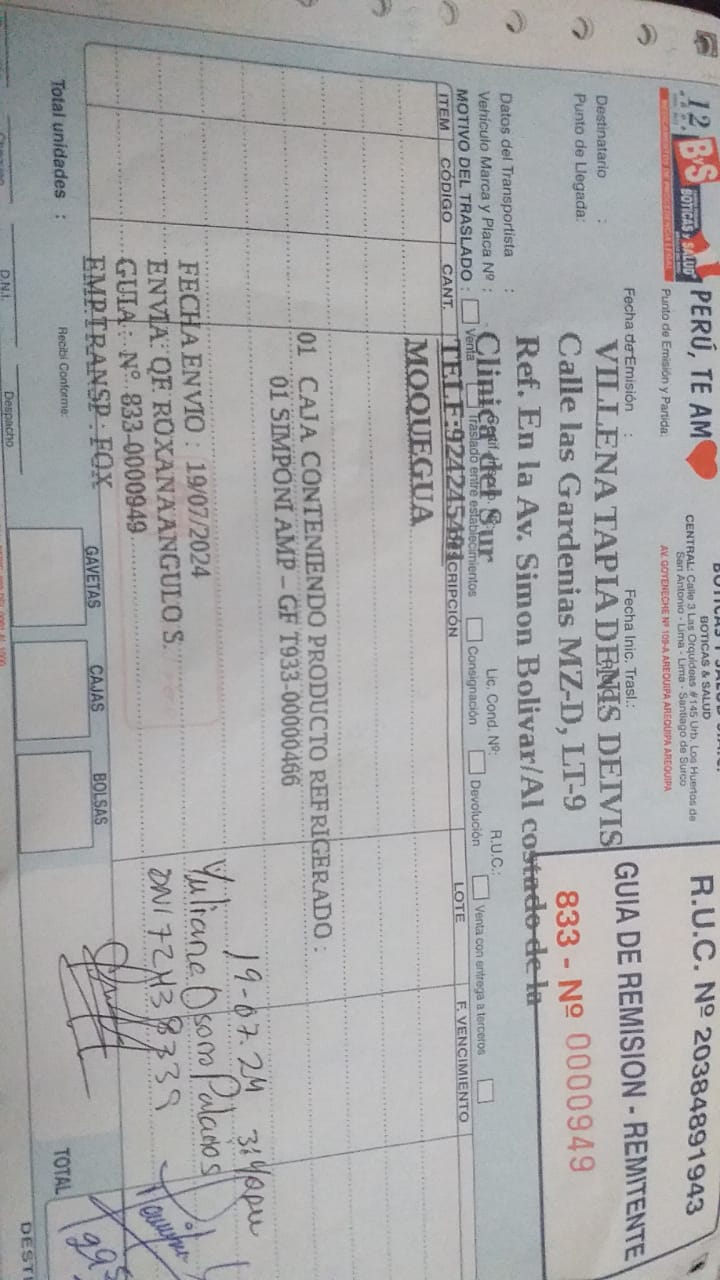 B&S
BOTICAS Y SALUD
PERÚ, TE AM
BOTICAS & SALUD
CENTRAL: Calle 3 Las Orquideas # 145 Urb. Los Huertos de
San Antonio - Lima - Lima - Santiago de Surco
AV. GOYENECHE Nº 109-A AREQUIPA AREQUIPA AREQUIPA
R.U.C. Nº 20384891943
GUIA DE REMISION - REMITENTE
833 - Nº 0000949
Punto de Emisión y Partida:
Fecha de Emisión :
Fecha Inic. Trasl.:
Destinatario :
VILLENA TAPIA DENIS DEIVIS
Punto de Llegada:
Calle las Gardenias MZ-D, LT-9
Ref. En la Av. Simon Bolivar/Al costado de la
Clinica del Sur
Datos del Transportista :
Vehículo Marca y Placa Nº :
Lic. Cond. Nº:
R.U.C.:
MOTIVO DEL TRASLADO :
Venta
Traslado entre establecimientos
Consignación
Devolución
Venta con entrega a terceros
TELF:924245481
ITEM CÓDIGO CANT. CRIPCIÓN LOTE F. VENCIMIENTO
MOQUEGUA
01 CAJA CONTENIENDO PRODUCTO REFRIGERADO :
01 SIMPONI AMP – GF T933-00000466
19-07-24 3:40pm
FECHA ENVIO : 19/07/2024
ENVIA: QF ROXANA ANGULO S.
GUIA : Nº 833-0000949
EMP.TRANSP : FOX
Palacios
DNI 72438339
Total unidades :
Recibí Conforme:
GAVETAS
CAJAS
BOLSAS
TOTAL
D.N.I.
Despacho